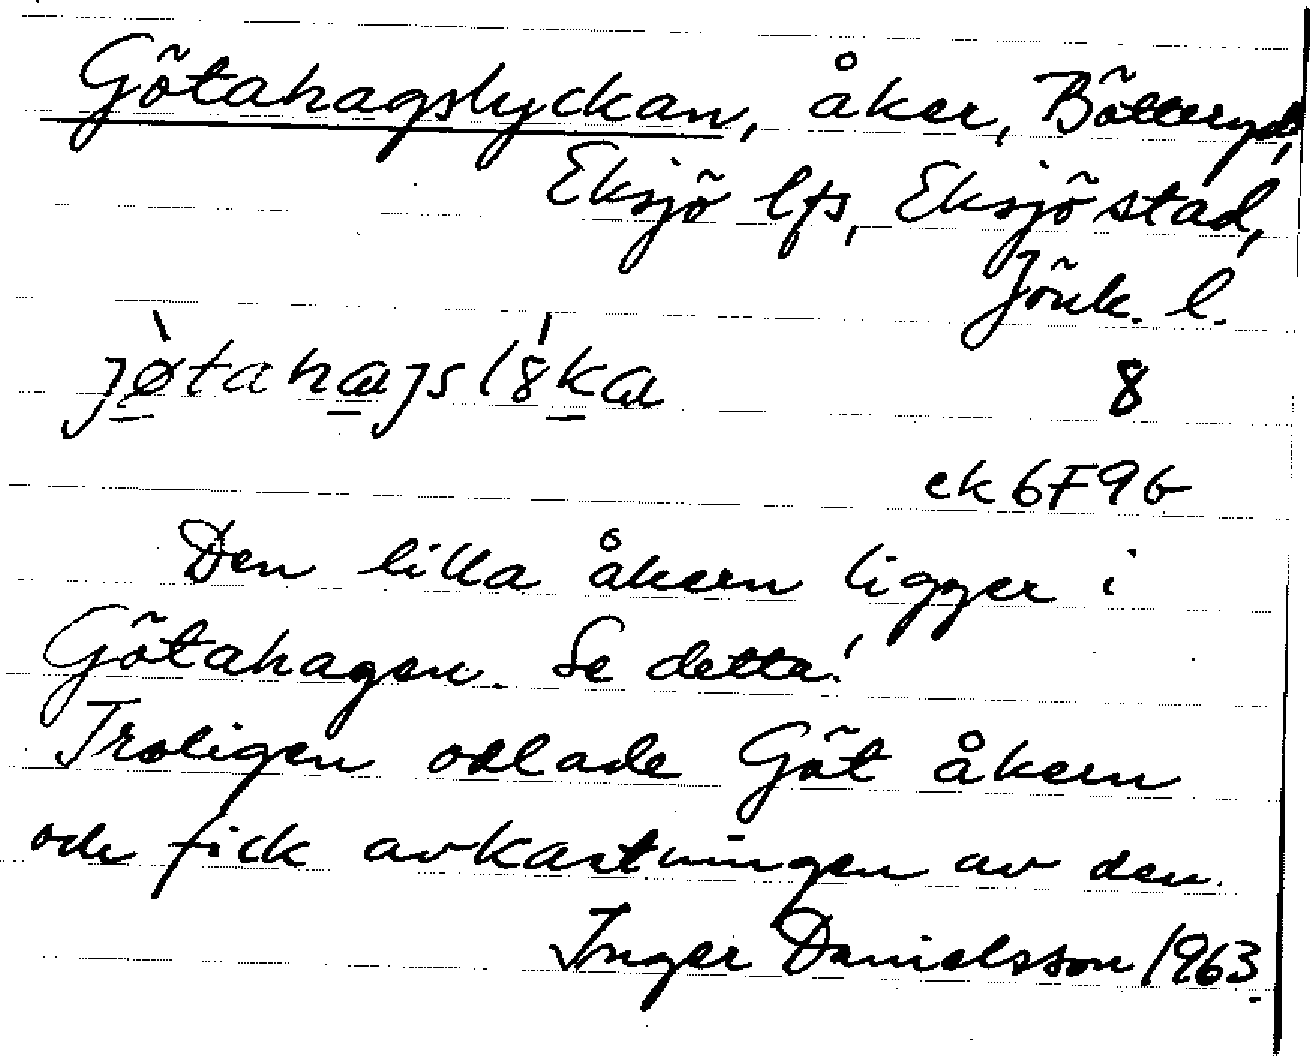 Götahagslyckan, åker, Bötteryd,
Eksjö lfs, Eksjö stad,
Jönk. l.
jø̀tahajsl8́ka 8
ek 6F9b
Den lilla åkern ligger i
Götahagen. Se detta!
Troligen odlade Göt åkern
och fick avkastningen av den.
Inger Danielsson 1963.